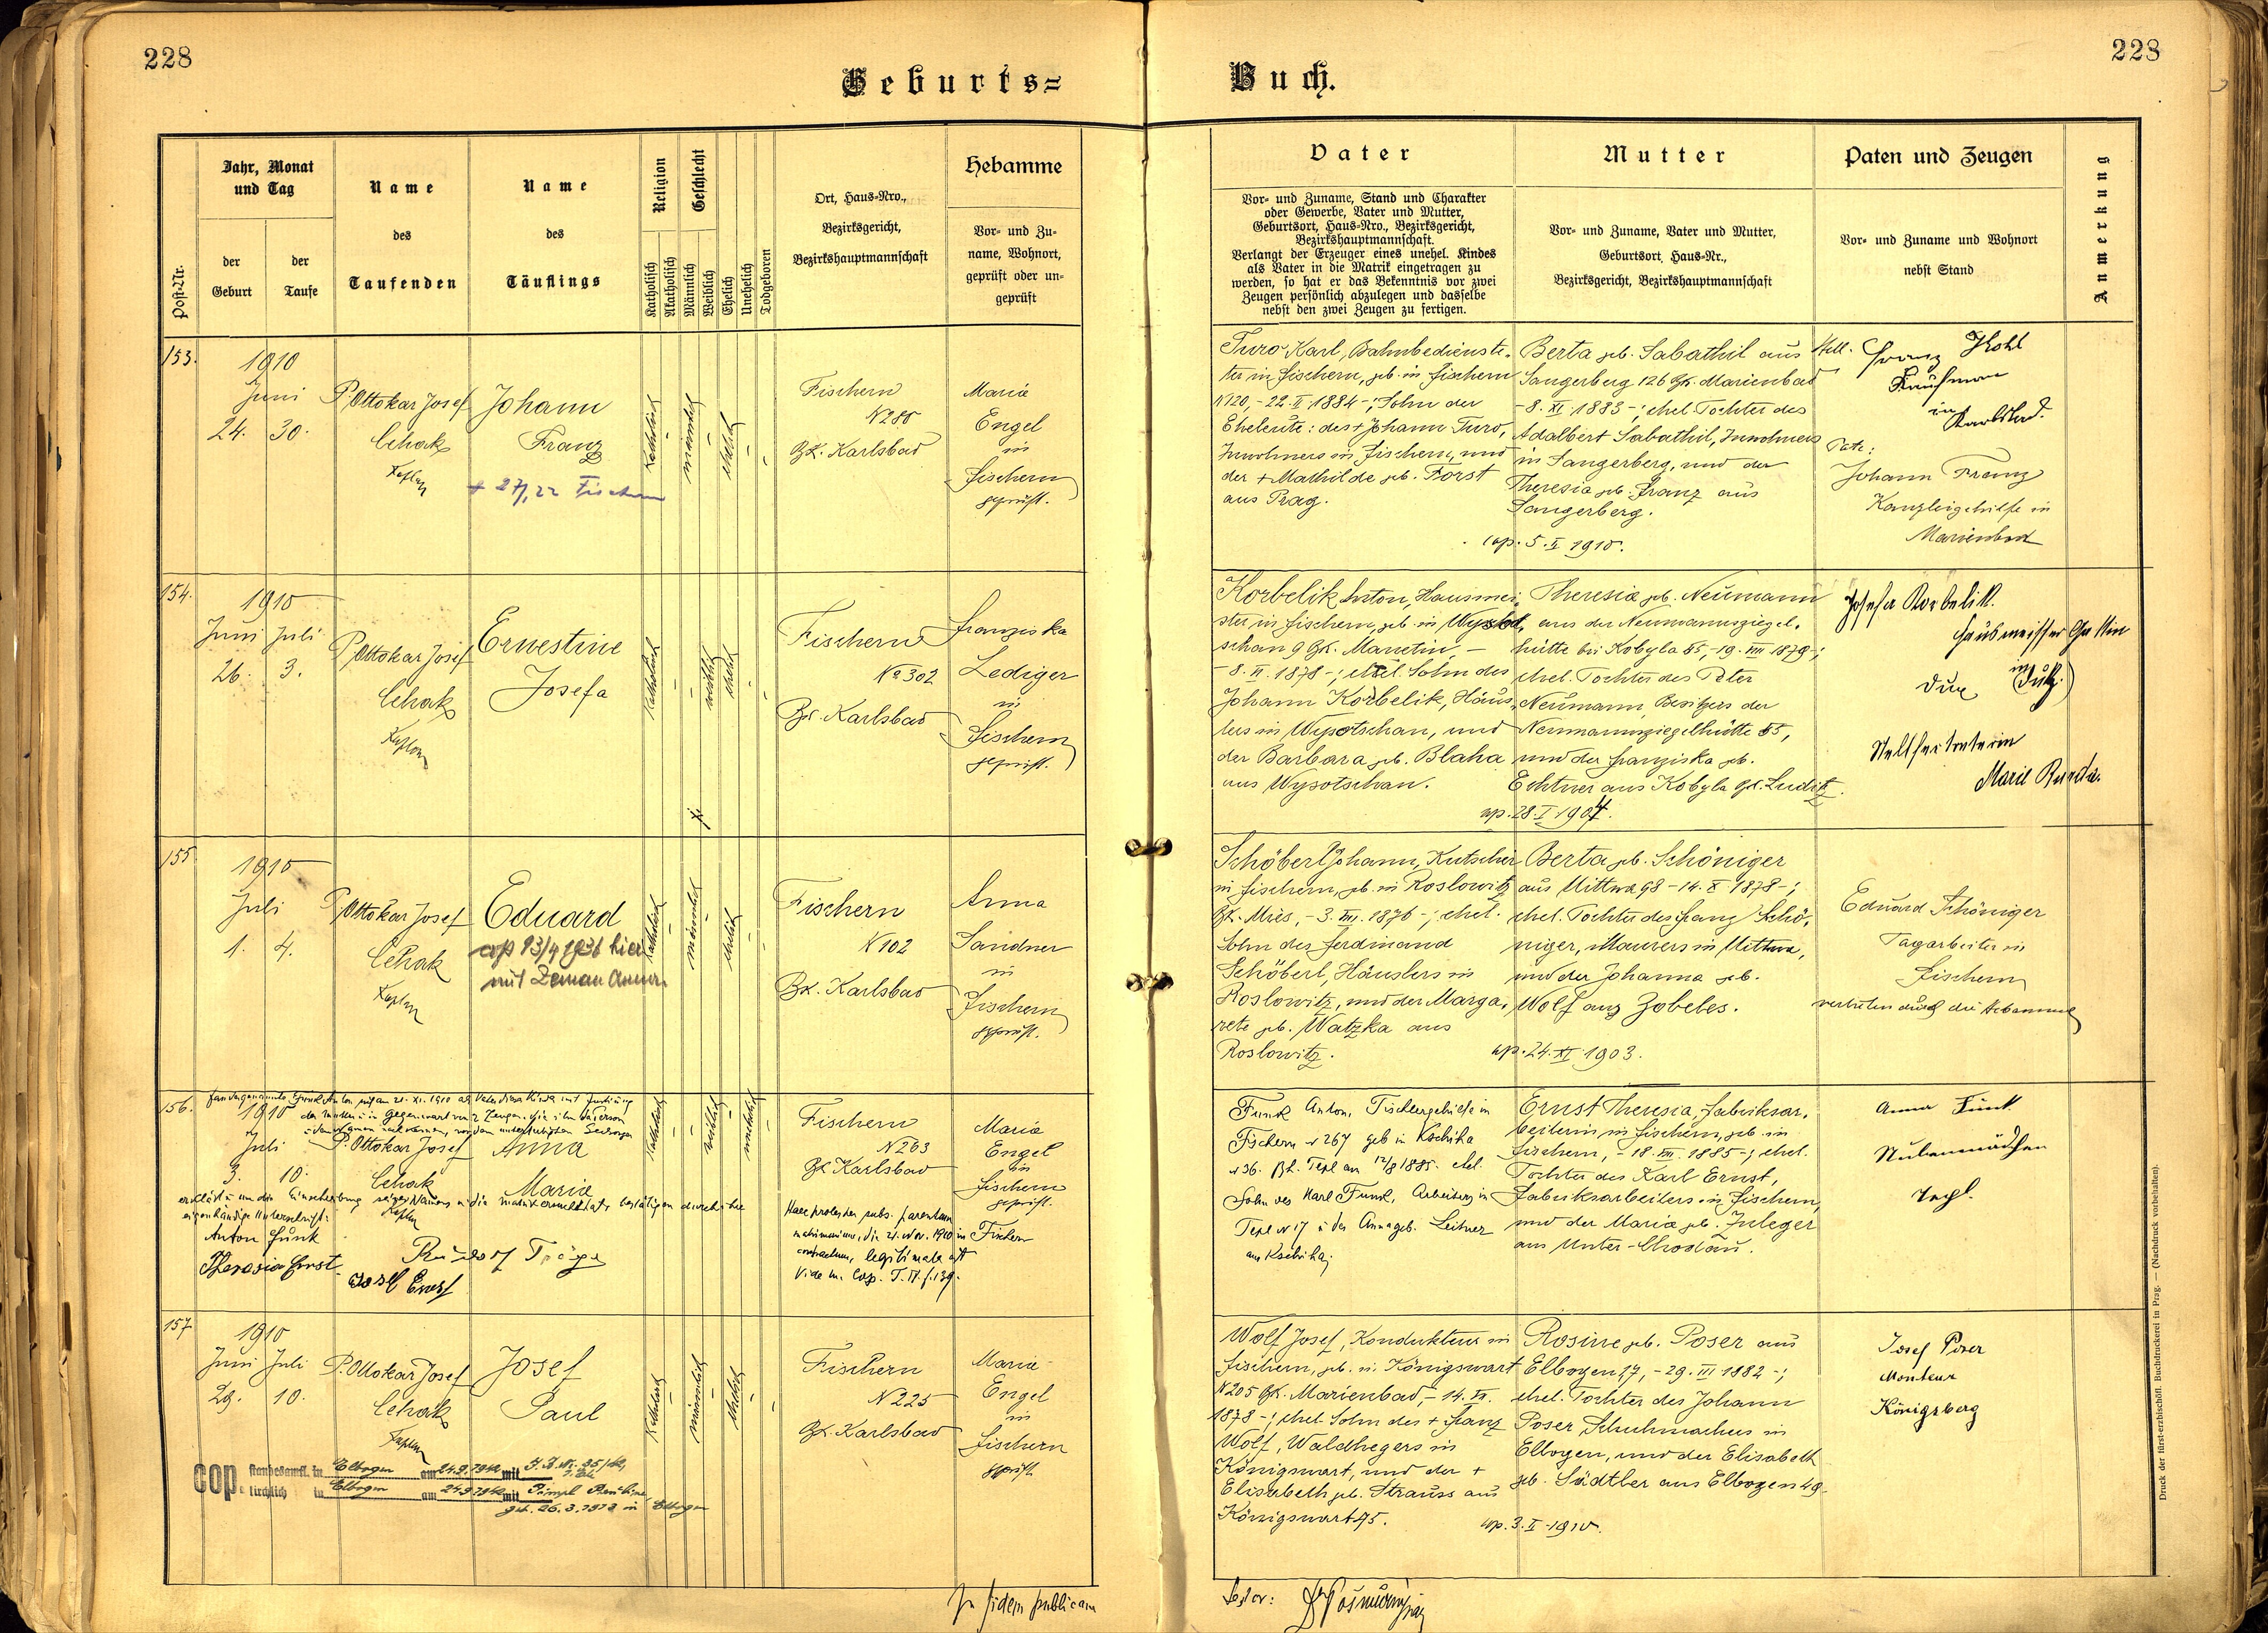 228
228
Geburts=
Buch.
Post-Nr.
Jahr, Monat
und Tag
der
Geburt
der
Taufe
Name
des
Taufenden
Name
des
Täuflings
Religion
Katholisch
Akatholisch
Geschlecht
Männlich
Weiblich
Ehelich
Unehelich
Todgeboren
Ort, Haus-Nro.,
Bezirksgericht,
Bezirkshauptmannschaft
Hebamme
Vor- und Zu-
name, Wohnort,
geprüft oder un-
geprüft
Vater
Vor- und Zuname, Stand und Charakter
oder Gewerbe, Vater und Mutter,
Geburtsort, Haus-Nro., Bezirksgericht,
Bezirkshauptmannschaft.
Verlangt der Erzeuger eines unehel. Kindes
als Vater in die Matrik eingetragen zu
werden, so hat er das Bekenntnis vor zwei
Zeugen persönlich abzulegen und dasselbe
nebst den zwei Zeugen zu fertigen.
Mutter
Vor- und Zuname, Vater und Mutter,
Geburtsort, Haus-Nr.,
Bezirksgericht, Bezirkshauptmannschaft
Paten und Zeugen
Vor- und Zuname und Wohnort
nebst Stand
Anmerkung
153.
1910
Juni
24. 30.
P. Ottokar Josef
Cehak
Kaplan
Johann
Franz
Katholisch
männlich
ehelich
Fischern
N 286
Gk. Karlsbad
Maria
Engel
in
Fischern
geprüft.
Turo Karl, Bahnbedienste-
ter in Fischern, geb. in Fischern
N 120, - 22. II. 1884 -; Sohn der
Eheleute: des + Johann Turo,
Inwohners in Fischern, und
der + Mathilde geb. Forst
aus Prag.
Berta geb. Sabathil aus
Sangerberg 126 Gk. Marienbad
- 8. XI. 1883 -; ehel. Tochter des
Adalbert Sabathil, Inwohners
in Sangerberg, und der
Theresia geb. Franz aus
Sangerberg.
cop. 5. II. 1910.
Stell.
Franz Kohl
Kaufman
in
Karlsbad.
Pate:
Johann Franz
Kanzleigehilfe in
Marienbad
154.
1910
Juni Juli
26. 3.
P. Ottokar Josef
Cehak
Kaplan
Ernestine
Josefa
Katholisch
weiblich
ehelich
Fischern
No 302
Gk. Karlsbad
Franziska
Lediger
in
Fischern
geprüft.
Korbelik Anton, Hausmei-
ster in Fischern, geb. in Wysot-
schan 9 Gk. Manetin, -
- 8. II. 1878 -; ehel. Sohn des
Johann Korbelik, Häus-
lers in Wysotschan, und
der Barbara geb. Blaha
aus Wysotschan.
Theresia geb. Neumann
aus der Neumannziegel-
hütte bei Kobyla 55, - 19. VIII. 1879 -;
ehel. Tochter des Peter
Neumann, Besitzers der
Neumannziegelhütte 55,
und der Franziska geb.
Echtner aus Kobyla Gk. Luditz.
cop. 28. I. 1904.
Josefa Korbelik.
Hausmeisters Gattin
in
Dux (Dux.)
Stellfertreterin
Marie
155
1910
Juli
1. 4.
P. Ottokar Josef
Cehak
Kaplan
Eduard
cop 13/4 1936 hier
mit Zeman Anna
Katholisch
männlich
ehelich
Fischern
N 102
Gk. Karlsbad
Anna
Sandner
in
Fischern
geprüft.
Schöberl Johann, Kutscher
in Fischern, geb. in Roslowitz
Gk. Mies, - 3. III. 1876 -; ehel.
Sohn der Ferdinand
Schöberl, Häuslers in
Roslowitz, und der Marga-
rete geb. Watzka aus
Roslowitz.
Berta geb. Schöniger
aus Uittwa 98 - 14. X. 1878 -;
ehel. Tochter des Franz Schö-
niger, Maurers in Uittwa,
und der Johanna geb.
Wolf aus Zobeles.
cop. 24. XI. 1903.
Eduard Schöniger
Tagarbeiter in
Fischern
vertreten durch die Hebamme
156.
1910
Juli
3. 10.
P. Ottokar Josef
Cehak
Kaplan
Anna
Maria
Katholisch
weiblich
unehelich
Fischern
N 263
Gk Karlsbad
Maria
Engel
in
Fischern
geprüft.
eigenhändige Unterschrift:
Anton Funk
Theresia Ernst
Josef Ernst
Haec proles per subs. parentum
matrimonium, die 21. Nov. 1910 in Fischern
contractum, legitimata est
Vide m. Cop. T. IV. f. 139.
Funk Anton, Tischlergehilfe in
Fischern N 267 geb in Kschiha
N 36. Bh. Tepl am 12/8 1885. ehel.
Sohn des Karl Funk, Arbeiters in
Tepl N 17 u der Anna geb. Leitner
aus Kschiha.
Ernst Theresia, Fabriksar-
beiterin in Fischern, geb. in
Fischern, - 18. VIII. 1885 -; ehel.
Tochter des Karl Ernst,
Fabriksarbeiters in Fischern,
und der Maria geb. Juleger
aus Unter-Chodau.
Anna Funk
Stubenmädchen
Tepl.
157
1910
Juni Juli
29. 10.
P. Ottokar Josef
Cehak
Kaplan
Josef
Paul
Katholisch
männlich
ehelich
Fischern
N 225
Gk. Karlsbad
Maria
Engel
in
Fischern
geprüft.
cop. standesamtl. in Elbogen am 24.9.1942 mit
kirchlich in Elbogen am 24.9.1942 mit
geb. 26.3.1913 in Elbogen
Wolf Josef, Kondukteur in
Fischern, geb. in Königswart
N 205 Gk. Marienbad, - 14. VI.
1878 -; ehel. Sohn des + Franz
Wolf, Waldhegers in
Königswart, und der +
Elisabeth geb. Strauss aus
Königswart 95.
Rosine geb. Poser aus
Elbogen 17, - 29. III. 1882 -;
ehel. Tochter des Johann
Poser Schuhmachers in
Elbogen, und der Elisabeth
geb. Südtler aus Elbogen 49.
cop. 3. I. 1910.
Josef Poser
Monteur
Königsberg
In fidem publicam
Druck der fürst-erzbischöfl. Buchdruckerei in Prag. — (Nachdruck vorbehalten).